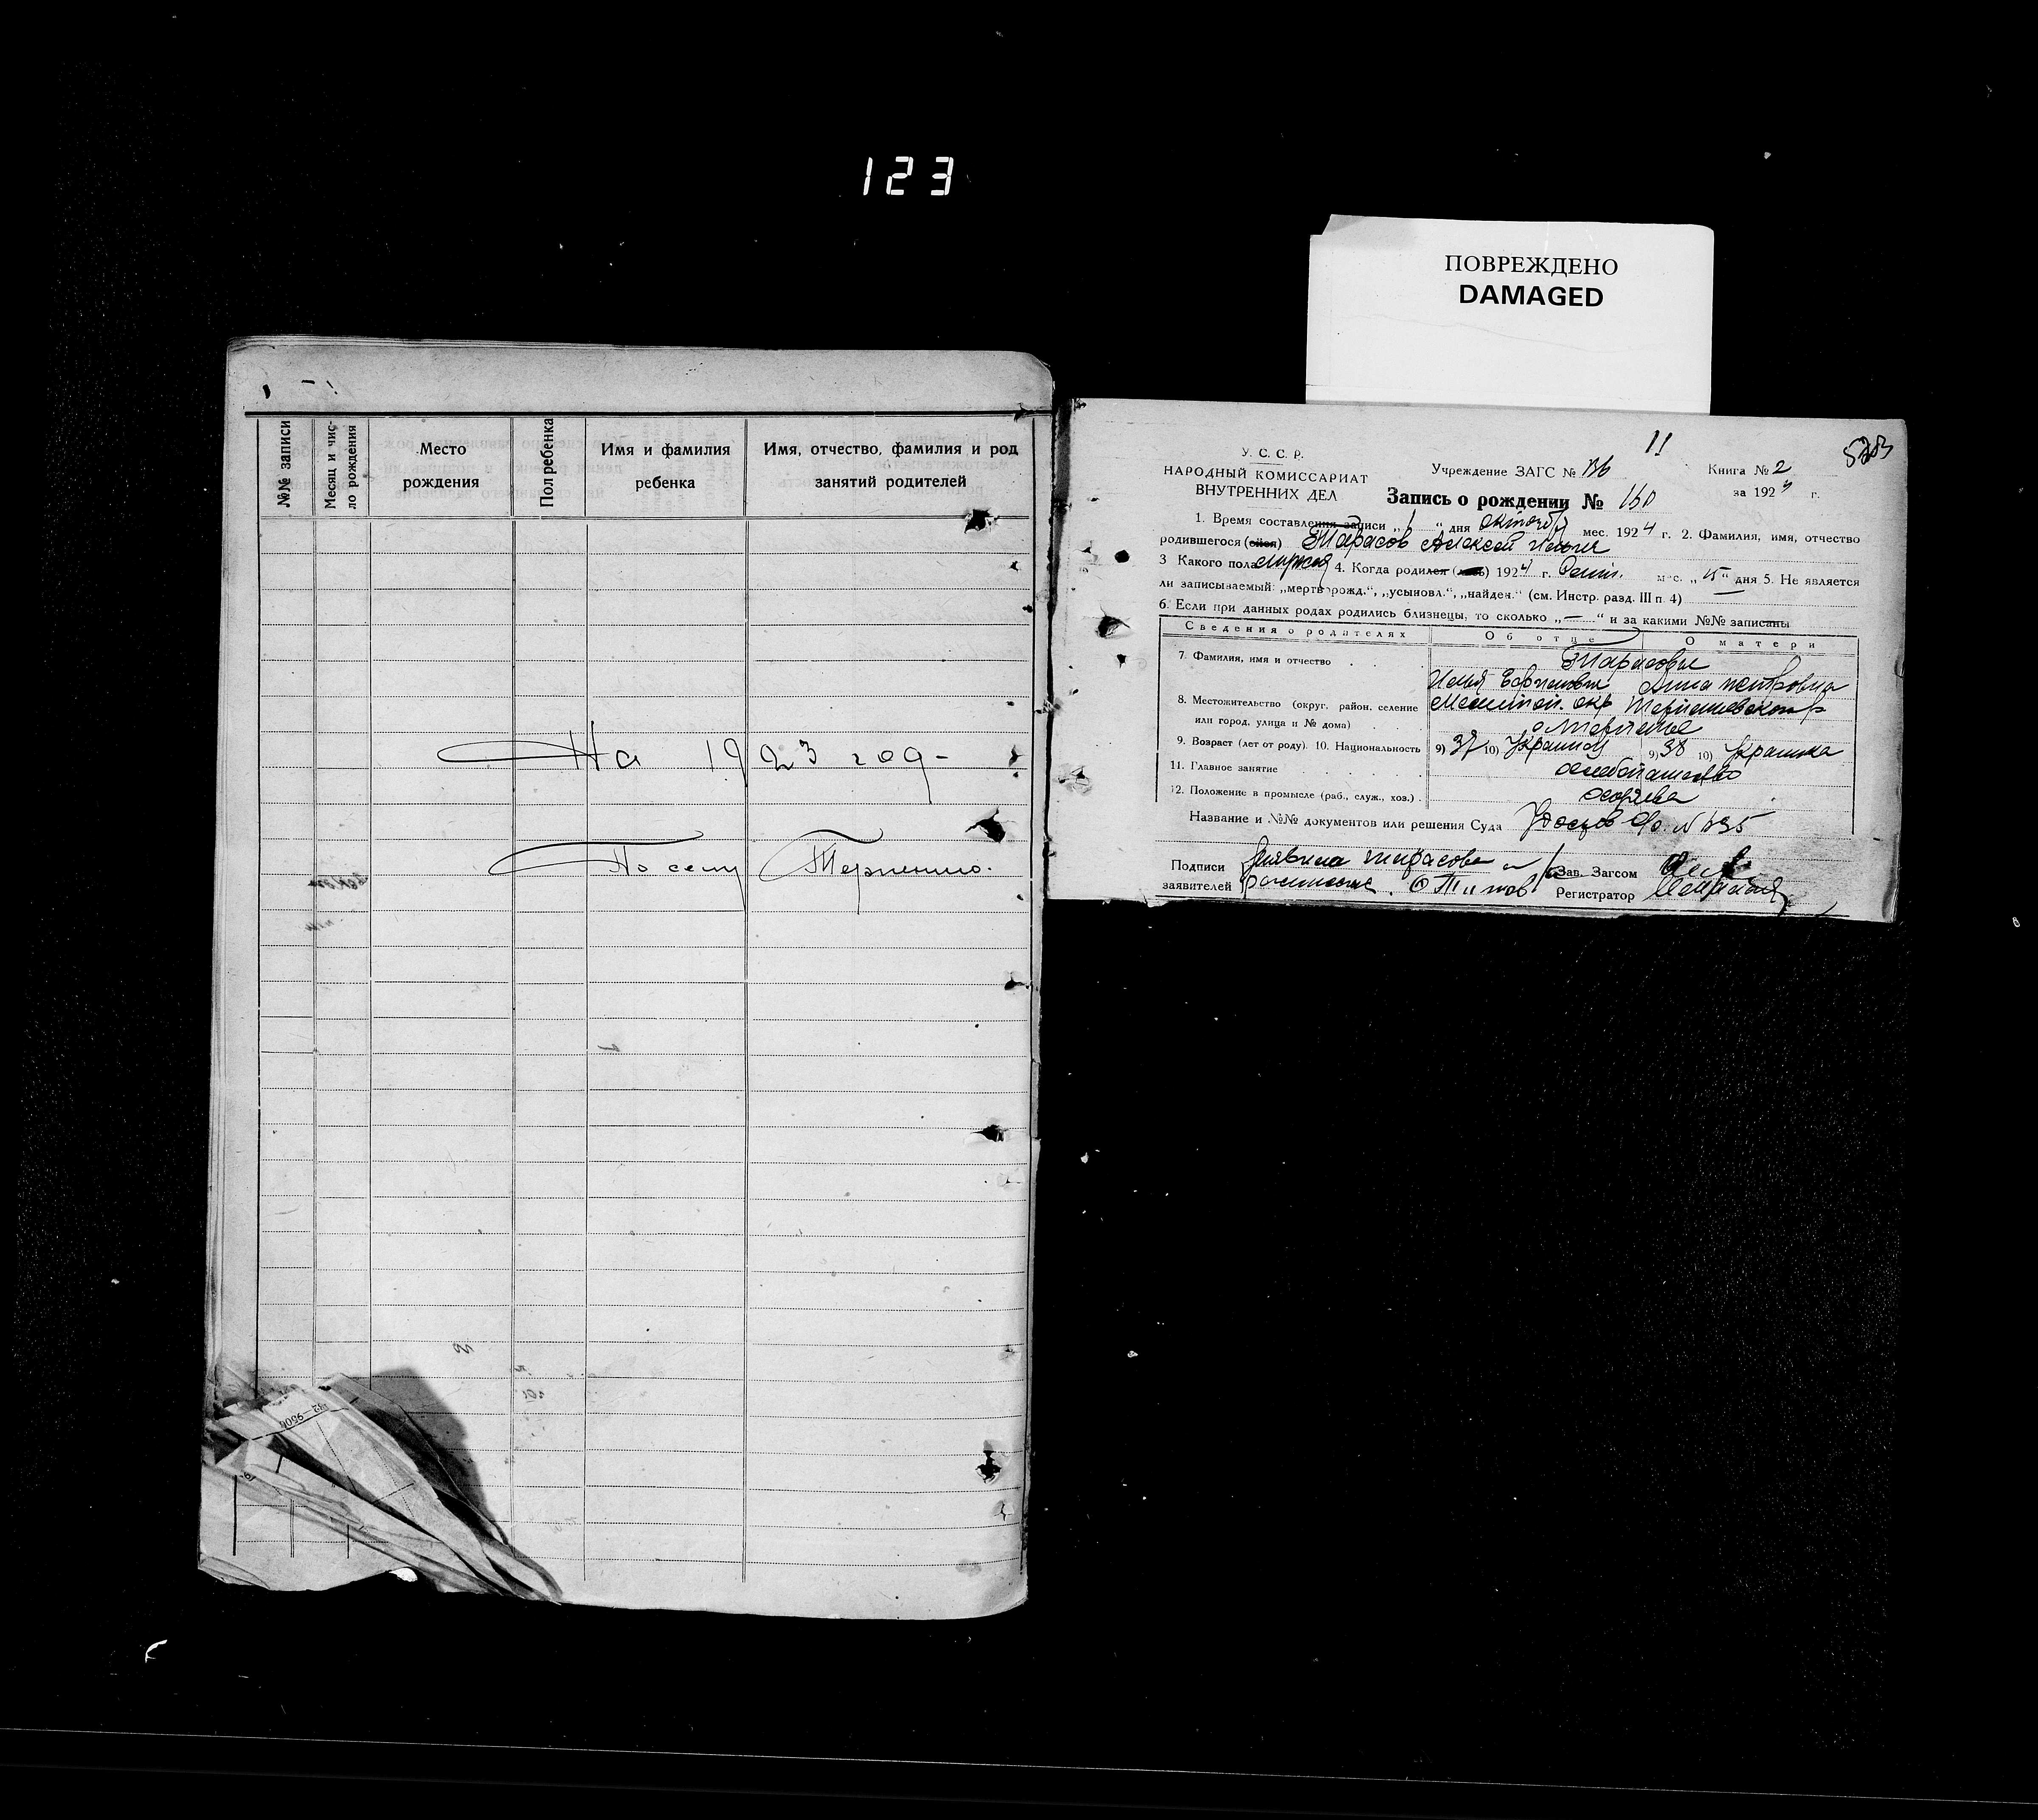 123
ПОВРЕЖДЕНО
DAMAGED
№№ записи
Месяц и чис-
ло рождения
Место
рождения
Пол ребенка
Имя и фамилия
ребенка
Имя, отчество, фамилия и род
занятий родителей
На 1923 год -
По селу Терпение.
11
У. С. С. Р.
НАРОДНЫЙ КОМИССАРИАТ
ВНУТРЕННИХ ДЕЛ
Учреждение ЗАГС №
Книга № 2
Запись о рождении № 160
за 1924 г.
1. Время составления записи „ 1 “ дня октября мес. 1924 г. 2. Фамилия, имя, отчество
родившегося (ейся) Тарасов Алексей
3 Какого пола мужской 4. Когда родился (лась) 1924 г. Сент. мес. „ 15 “ дня 5. Не является
ли записываемый: „мертворожд.“, „усыновл.“, „найден.“ (см. Инстр. разд. III п. 4) —
6. Если при данных родах родились близнецы, то сколько „ — “ и за какими №№ записаны
Сведения о родителях
Об отце
О матери
7. Фамилия, имя и отчество
Тарасовы
Илья
Анна Петровна
8. Местожительство (округ. район, селение
или город, улица и № дома)
Мелитоп. окр
с Терпение
9. Возраст (лет от роду). 10. Национальность
9) 37 10) Украин
9) 38 10) Украинка
11. Главное занятие
хлебопашество
12. Положение в промысле (раб., служ., хоз.)
хозяева
Название и №№ документов или решения Суда
Подписи
заявителей
Тарасова
Титов
Зав. Загсом
Регистратор